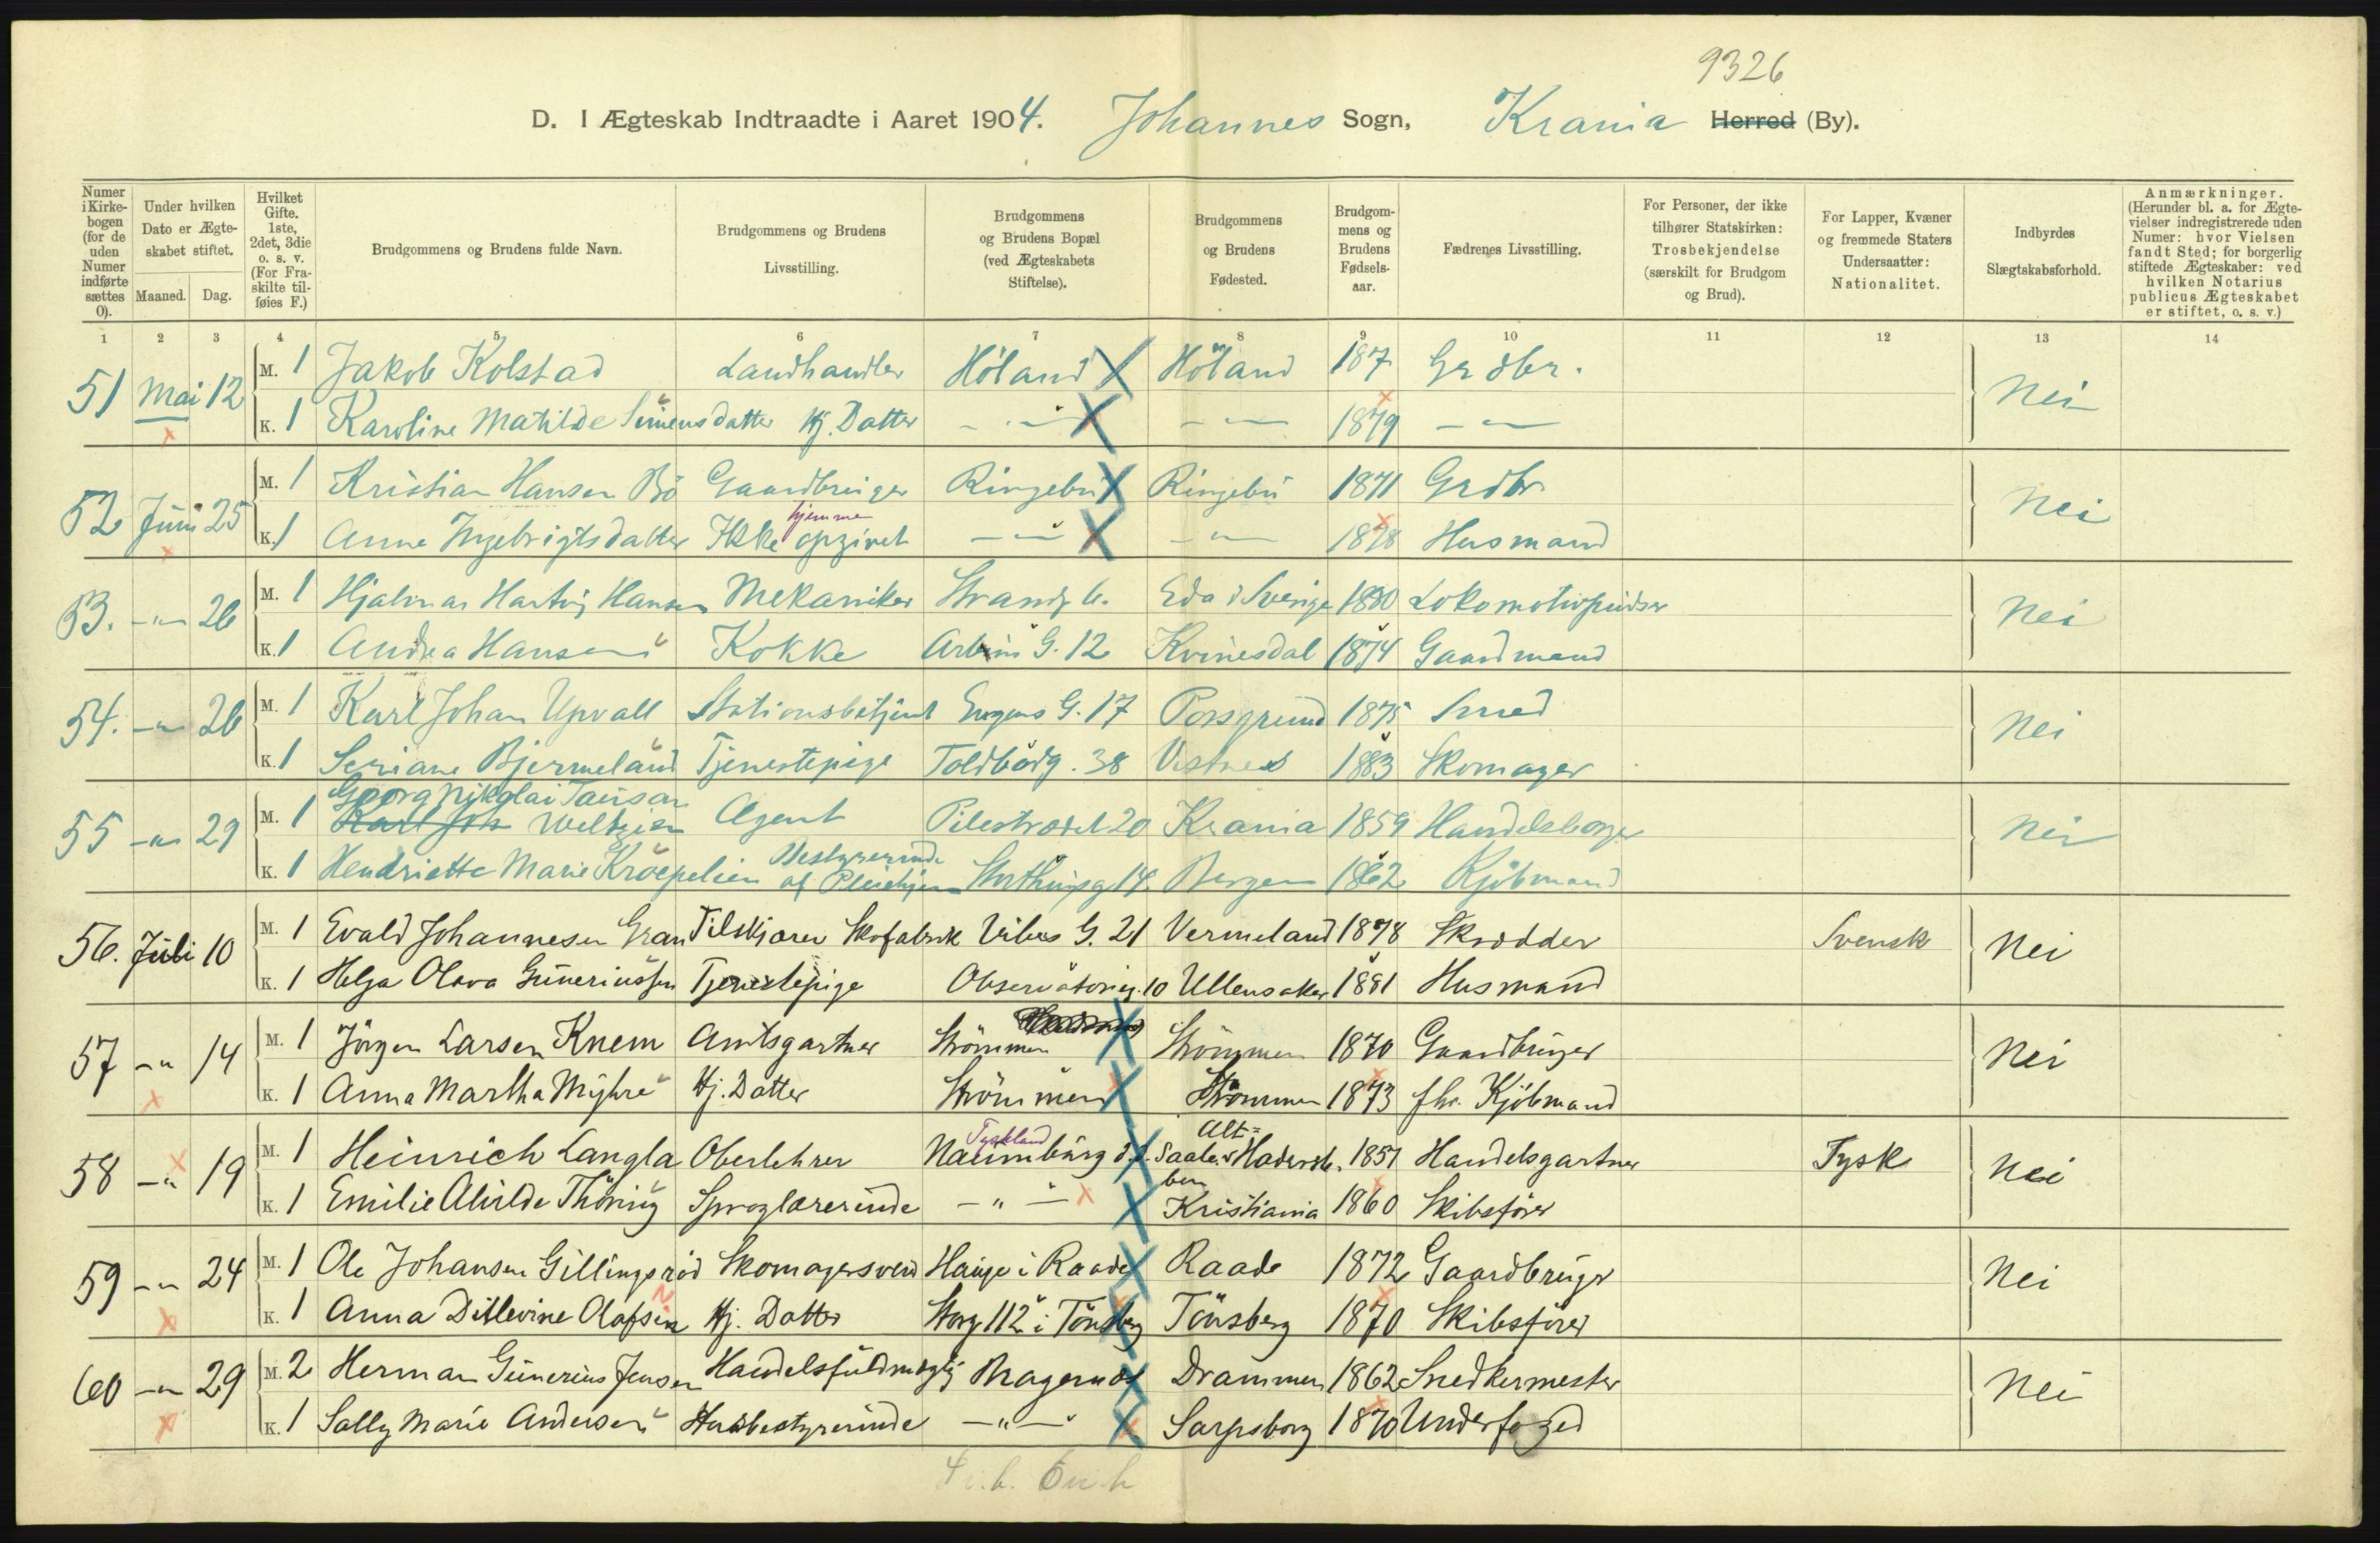 9326
D. I Ægteskab Indtraadte i Aaret 1904. Johannes Sogn, Krania Herred (By).
Numer i Kirke-bogen (for de uden Numer indførte sættes 0).
Under hvilken Dato er Ægte-skabet stiftet.
Maaned. Dag.
Hvilket Gifte. 1ste, 2det, 3die o. s. v. (For Fra-skilte til-føies F.)
Brudgommens og Brudens fulde Navn.
Brudgommens og Brudens Livsstilling.
Brudgommens og Brudens Bopæl (ved Ægteskabets Stiftelse).
Brudgommens og Brudens Fødested.
Brudgom-mens og Brudens Fødsels-aar.
Fædrenes Livsstilling.
For Personer, der ikke tilhører Statskirken: Trosbekjendelse (særskilt for Brudgom og Brud).
For Lapper, Kvæner og fremmede Staters Undersaatter: Nationalitet.
Indbyrdes Slægtskabsforhold.
Anmærkninger. (Herunder bl. a. for Ægte-vielser indregistrerede uden Numer: hvor Vielsen fandt Sted; for borgerlig stiftede Ægteskaber: ved hvilken Notarius publicus Ægteskabet er stiftet, o. s. v.)
1 2 3 4 5 6 7 8 9 10 11 12 13 14
51 Mai 12 M. 1 Jakob Kolstad Landhandler Höland Höland 187 Grdbr. Nei
K. 1 Karoline Matilde Simensdatter Hj. Datter - " - - " - 1879 - " -
52 Juni 25 M. 1 Kristian Hansen Bö Gaardbruger Ringebu Ringebu 1871 Grdbr Nei
hjemme
K. 1 Anna Ingebrigtsdatter Ikke opgivet - " - - " - 1878 Husmand
53. - " - 26 M. 1 Hjalmar Hartvig Hansen Mekaniker Strandg 6. Eda i Sverige 1880 Lokomotivpudser Nei
K. 1 Andrea Hansen Kokke Arbins G. 12 Kvinesdal 1874 Gaardmand
54. - " - 26 M. 1 Karl Johan Upvall Stationsbetjent Eugens G. 17 Porsgrund 1875 Smed Nei
K. 1 Seriane Bjermeland Tjenestepige Toldbodg. 38 Vestnes 1883 Skomager
Georg Nikolai Tausan
55 - " - 29 M. 1 Karl Joh Weltzien Agent Pilestrædet 20 Krania 1859 Handelsborger Nei
Bestyrerinde
K. 1 Hendriette Marie Kröepelien af Pleiehjem Storthingsg 14. Bergen 1862 Kjöbmand
56. Juli 10 M. 1 Evald Johannesen Gran Tilskjærer Skofabrik Vibes G. 21 Vermeland 1878 Skrædder Svensk Nei
K. 1 Helga Olava Guneriussen Tjenestepige Observatorieg. 10 Ullensaker 1881 Husmand
57 - " 14 M. 1 Jörgen Larsen Knem Amtsgartner Strömmen Strömmen 1870 Gaardbruger Nei
K. 1 Anna Martha Myhre Hj. Datter Strömmen Strömmen 1873 fhv. Kjöbmand
Tyskland Alt-
58 - " 19 M. 1 Heinrich Langla Oberlehrer Naumburg a. d. Saale. Hadersle- 1851 Handelsgartner Tysk Nei
ben
K. 1 Emilie Alvilde Thöring Sproglærerinde - " - Kristiania 1860 Skibsförer
59 - " - 24 M. 1 Ole Johansen Gillingsrød Skomagersvend Hauge i Raade Raade 1872 Gaardbruger Nei
K. 1 Anna Ditlevine Olafsen Hj. Datter Storg 112 i Tönsberg Tönsberg 1870 Skibsförer
60 - " - 29 M. 2 Herman Gunerius Jensen Handelsfuldmægtig Bragernæs Drammen 1862 Snedkermester Nei
K. 1 Sally Marie Andersen Husbestyrerinde - " - Sarpsborg 1870 Underfoged